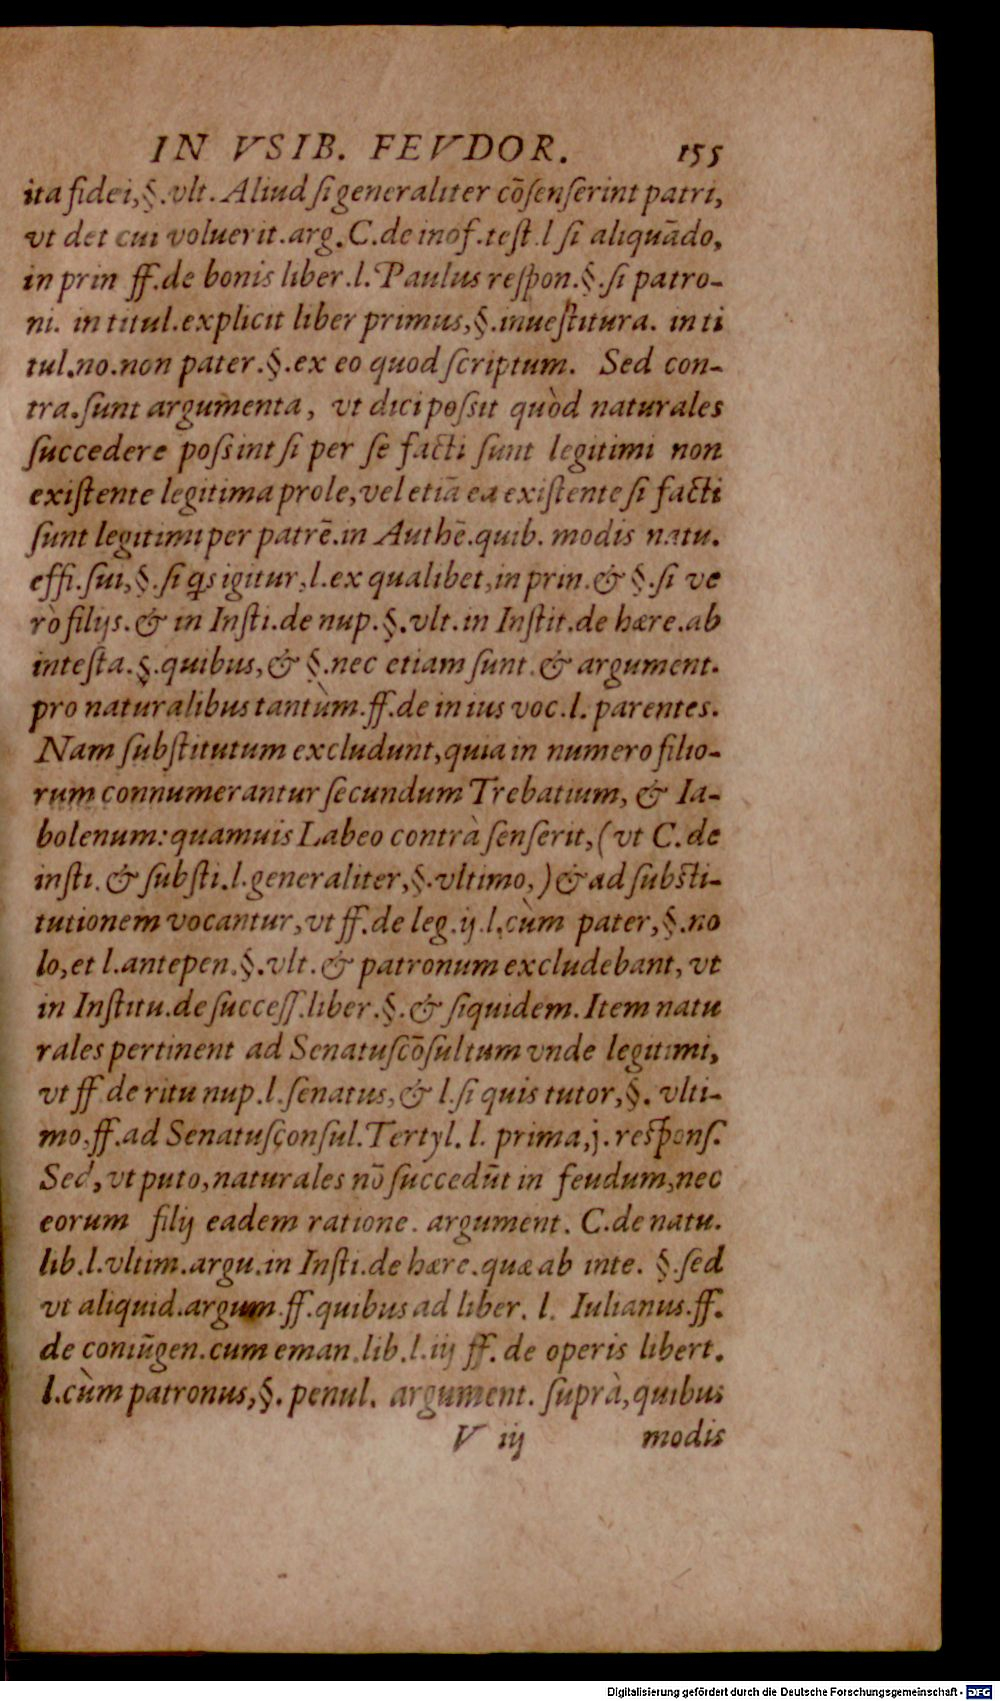 IN VSIB. FEVDOR. 155
ita fidei,§.vlt. Aliud ſi generaliter cõſenſerint patri,
vt det cui voluerit.arg. C.de inof.teſt.l ſi aliquãdo,
in prin ff.de bonis liber.l. Paulus reſpon.§.ſi patro-
ni. in titul.explicit liber primus,§.inueſtitura. in ti
tul.no.non pater.§.ex eo quod ſcriptum. Sed con-
tra.ſunt argumenta, vt dici poſsit quòd naturales
ſuccedere poſsint ſi per ſe facti ſunt legitimi non
exiſtente legitima prole,vel etiã ea exiſtente ſi facti
ſunt legitimi per patrẽ.in Authẽ.quib. modis natu.
effi.ſui,§.ſi q̃s igitur,l.ex qualibet,in prin.& §.ſi ve
rò filijs.& in Inſti.de nup.§.vlt.in Inſtit.de hære.ab
inteſta.§.quibus,& §.nec etiam ſunt.& argument.
pro naturalibus tantùm.ff.de in ius voc.l. parentes.
Nam ſubſtitutum excludunt,quia in numero filio-
rum connumerantur ſecundum Trebatium, & Ia-
bolenum:quamuis Labeo contrà ſenſerit,(vt C.de
inſti.& ſubſti.l.generaliter,§.vltimo,)& ad ſubſti-
tutionem vocantur,vt ff.de leg.ij.l.cùm pater,§.no
lo,et l.antepen.§.vlt.& patronum excludebant, vt
in Inſtitu.de ſucceſſ.liber.§.& ſiquidem. Item natu
rales pertinent ad Senatuſcõſultum vnde legitimi,
vt ff de ritu nup.l.ſenatus,& l.ſi quis tutor,§. vlti-
mo.ff.ad Senatuſconſul.Tertyl. l. prima,j. reſponſ.
Sed, vt puto,naturales nõ ſuccedũt in feudum,nec
eorum filij eadem ratione. argument. C.de natu.
lib.l.vltim.argu.in Inſti.de hære.quæ ab inte. §.ſed
vt aliquid.argum.ff.quibus ad liber. l. Iulianus.ff.
de coniũgen.cum eman.lib.l.iij ff. de operis libert.
l.cùm patronus,§. penul. argument. ſuprà,quibus
V iij modis
Digitalisierung gefördert durch die Deutsche Forschungsgemeinschaft - DFG